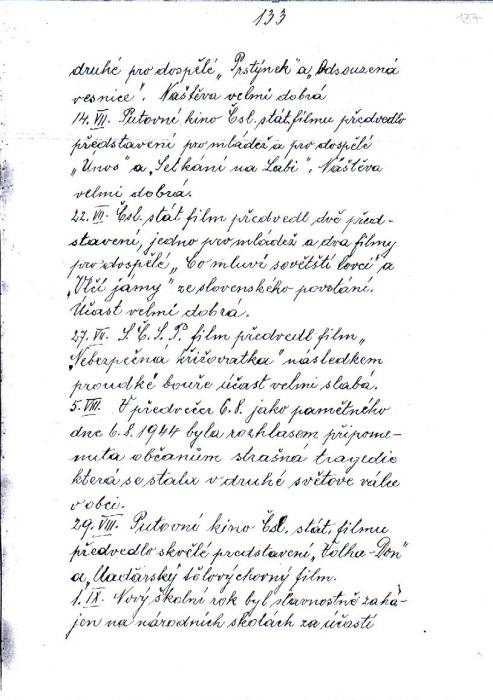 133
137
druhé pro dospělé „Prstýnek" a „Odsouzená
vesnice". Naštěva velmi dobrá
14. VII. Putovní kino Čsl. stát. filmu předvedlo
představení pro mládež a pro dospělé
„Únos" a „Setkání na Labi". Náštěva
velmi dobrá.
22. VII. Čsl. stát film předvedl dvě před-
stavení, jedno pro mládež a dva filmy
pro dospělé „Co mluví sovětští lovci" a
„Vlčí jámy" ze slovenského povstání.
Účast velmi dobrá.
27. VII. S. Č. S. P. film předvedl film „
Nebezpečná křižovratka" následkem
proudké bouře účast velmi slabá.
5. VIII. V předvečer 6. 8. jako pamětného
dne 6. 8. 1944 byla rozhlasem připome-
nuta občanům strašná tragedie
která se stala v druhé světové válce
v obci.
29. VIII. Putovní kino Čsl. stát. filmu
předvedlo skvělé predstavení „Volha-Don"
a „Maďarský tělovýchovný film.
1. IX. Nový školní rok byl slavnostně zahá-
jen na národních školách za účasti